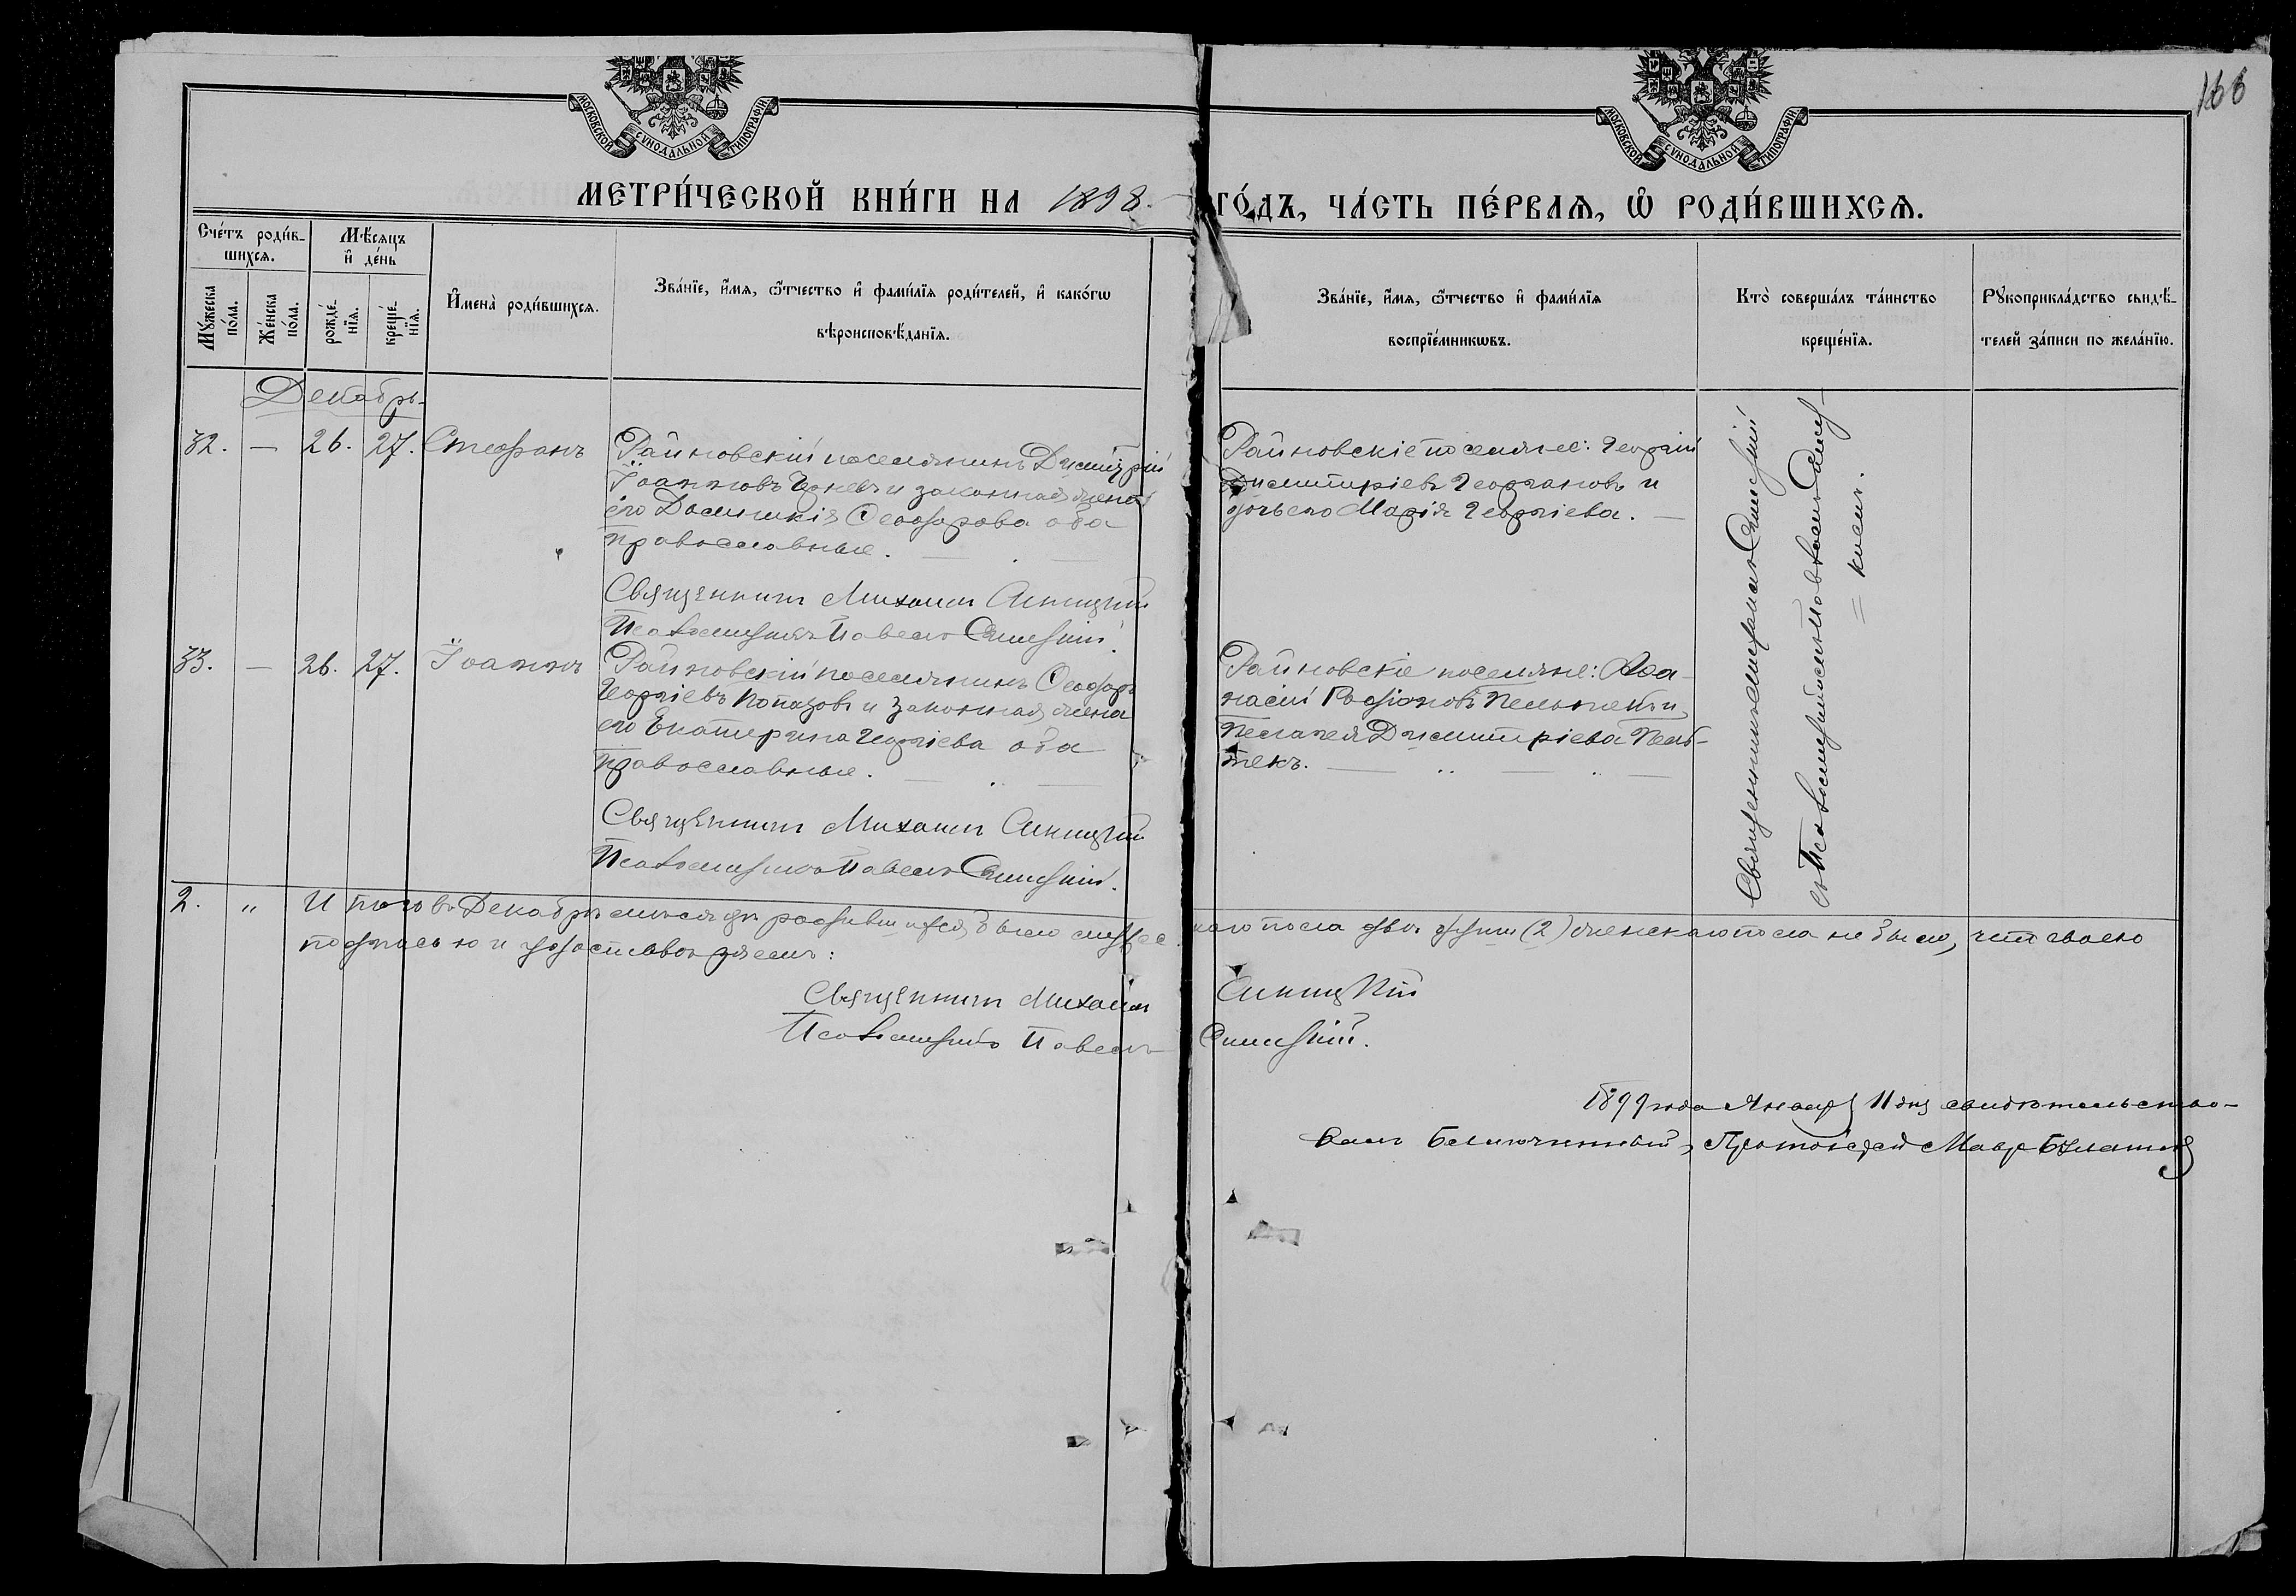 166
МОСКОВСКОЙ СУНОДАЛЬНОЙ ТИПОГРАФІИ
МОСКОВСКОЙ СУНОДАЛЬНОЙ ТИПОГРАФІИ
МЕТРИ́ЧЕСКОЙ КНИ́ГИ НА 1898 ГО́ДЪ, ЧА́СТЬ ПЕ́РВАѦ, Ѡ҆ РОДИ́ВШИХСѦ.
Сче́тъ роди́в-
шихсѧ.
Мꙋ́жеска
по́ла.
Же́нска
по́ла.
Мѣ́сѧцъ
и҆ де́нь
рожде́-
нїѧ.
креще́-
нїѧ.
И҆мена̀ роди́вшихсѧ.
Зва́нїе, и҆́мѧ, ѻ҆́тчество и҆ фами́лїѧ роди́телей, и҆ како́гѡ
вѣроисповѣ́данїѧ.
Зва́нїе, и҆́мѧ, ѻ҆́тчество и҆ фами́лїѧ
воспрїе́мникѡвъ.
Кто̀ соверша́лъ та́инство
креще́нїѧ.
Рꙋкоприкла́дство свидѣ́-
телей за́писи по жела́нїю.
Декабрь
32. — 26. 27. Стефанъ
Райновскій поселянинъ Димитрій
Іоанновъ и законная жена
его Домникія Ѳеодорова оба
православные.
Священникъ Михаилъ
Псаломщикъ Павелъ
Райновскіе поселяне: Георгій
Димитріевъ и
дочь его Марія Георгіева.
Священникъ Михаилъ
съ Псаломщикомъ Павломъ
33. — 26. 27. Іоаннъ
Райновскій поселянинъ Ѳеодоръ
Георгіевъ и законная жена
его Екатерина Георгіева оба
православные.
Священникъ Михаилъ
Псаломщикъ Павелъ
Райновскіе поселяне: Аѳа-
насій Родіоновъ и
Пелагея Димитріева
2. " Итого въ Декабрѣ мѣсяцѣ родившихся было мужес-
каго пола два души (2) женскаго пола не было, что своею
подписью и удостовѣряемъ:
Священникъ Михаилъ
Псаломщикъ Павелъ
1899 года Января 11 дня свидѣтельство-
валъ Благочинный, Протоіерей